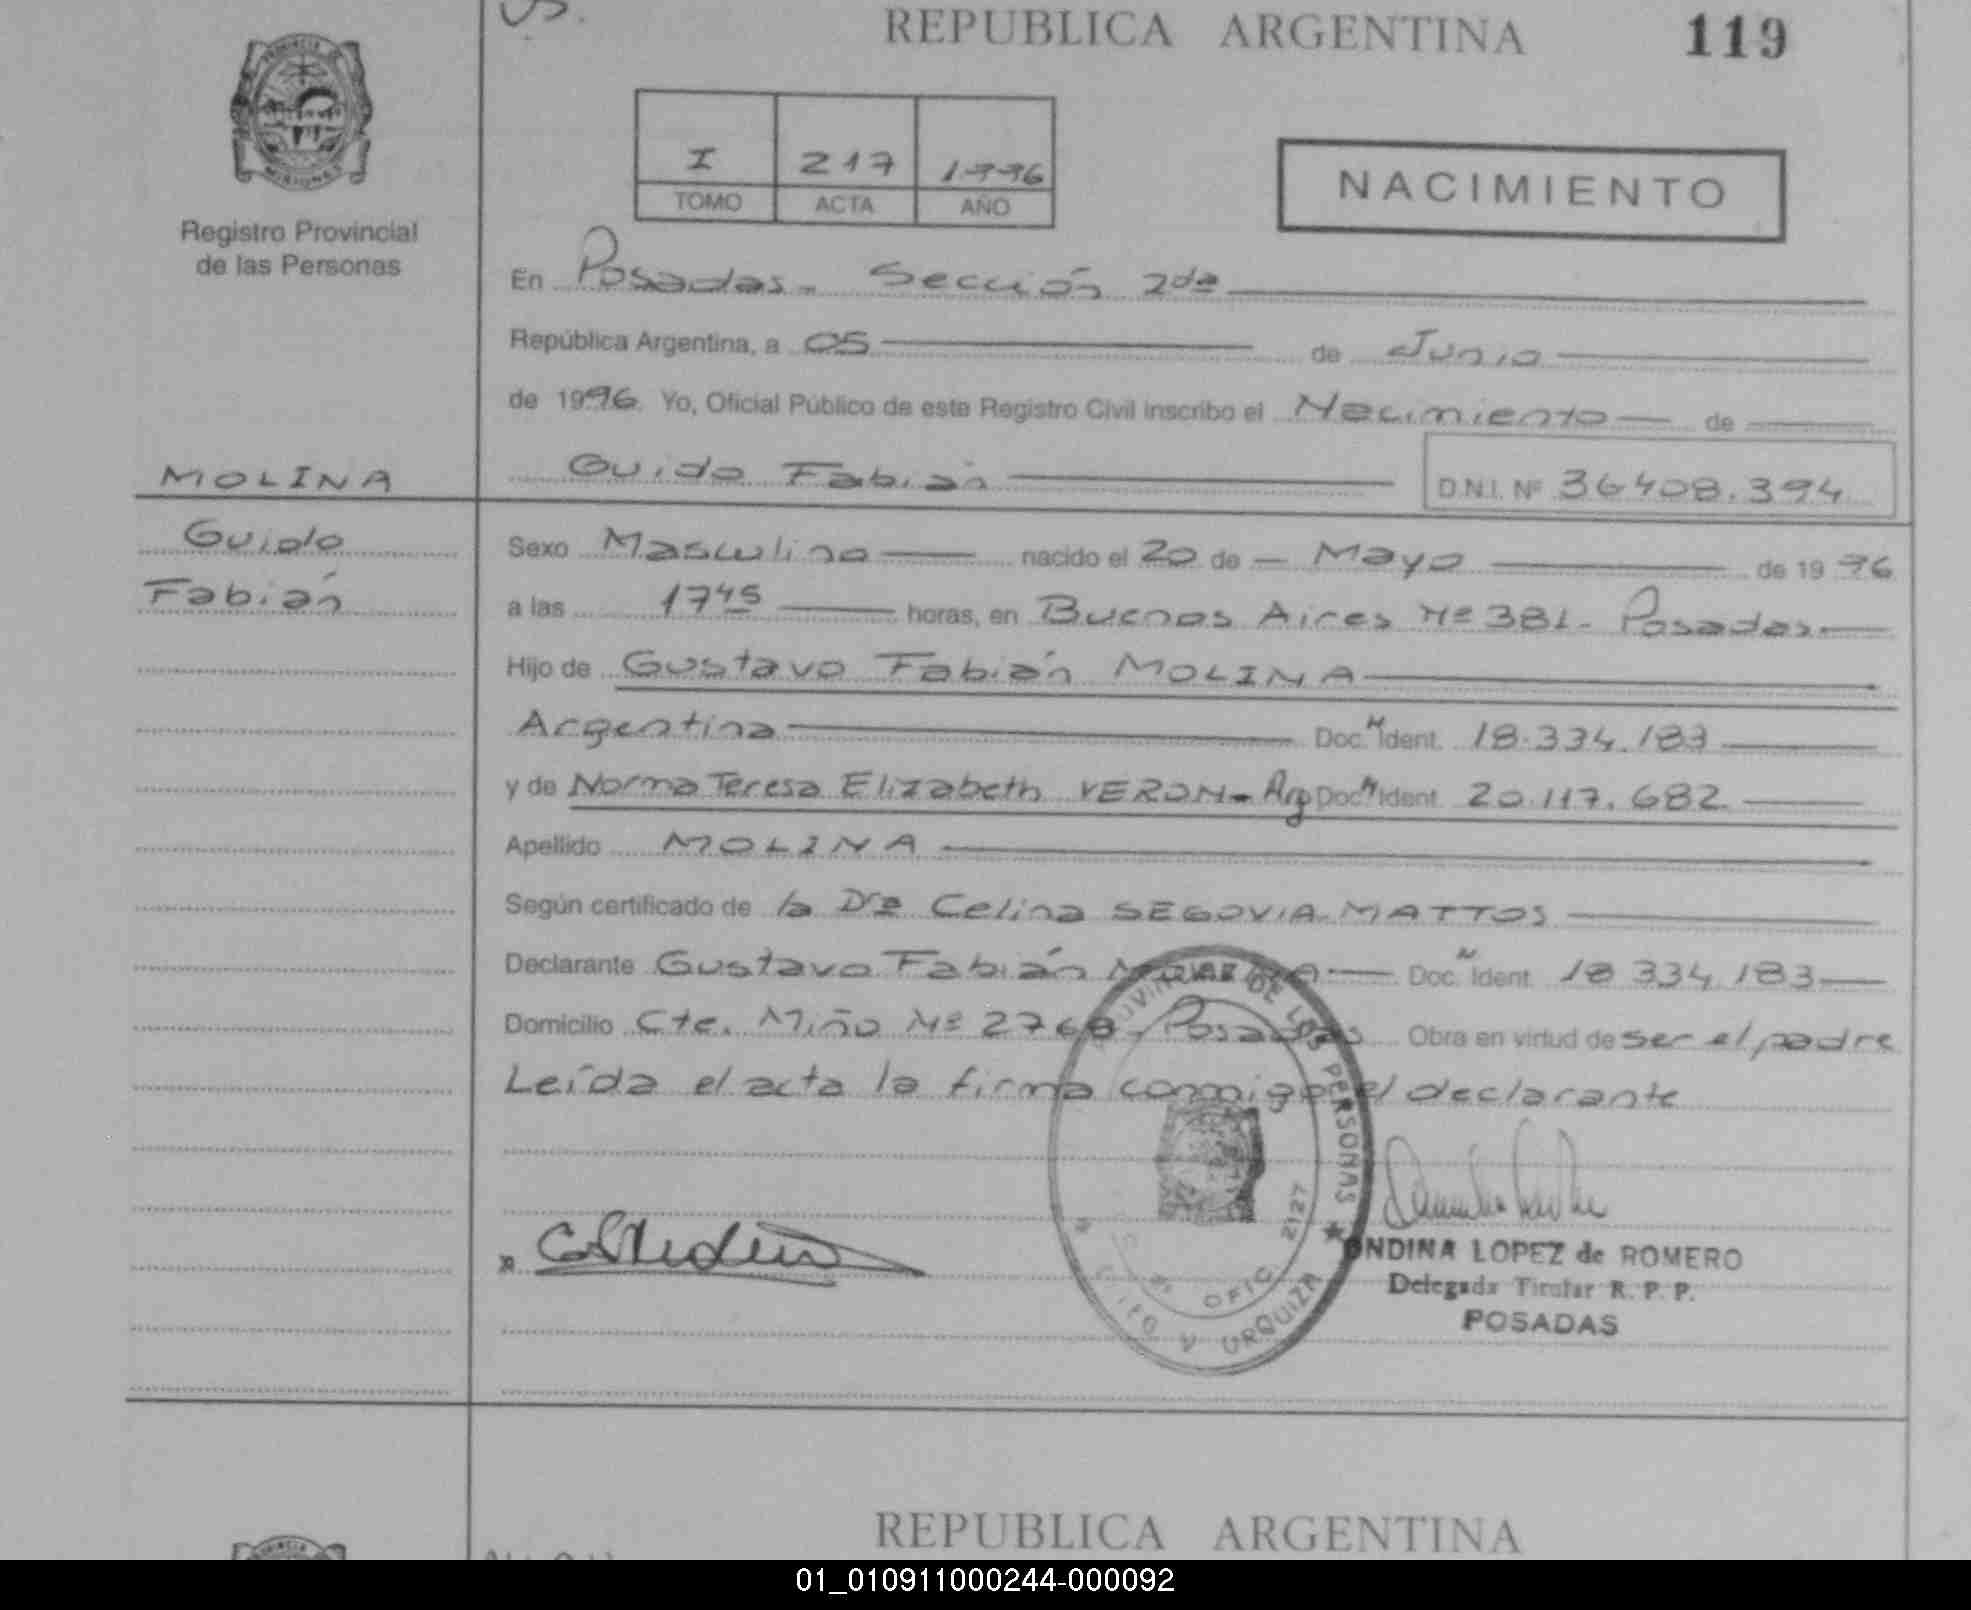 REPUBLICA ARGENTINA
119
PROVINCIA DE MISIONES
Registro Provincial
de las Personas
I 217 1996
TOMO ACTA AÑO
NACIMIENTO
En Posadas - Sección 2da
República Argentina, a 05 de Junio
de 1996. Yo, Oficial Público de este Registro Civil inscribo el Nacimiento de
MOLINA
Guido Fabián
D.N.I. Nº 36408.394
Guido
Fabián
Sexo Masculino nacido el 20 de Mayo de 1996
a las 17 45 horas, en Buenos Aires Nº 381 - Posadas.
Hijo de Gustavo Fabián MOLINA
Argentina Doc. N Ident. 18.334.183
y de Norma Teresa Elizabeth VERON - Arg Doc. N Ident. 20.117.682
Apellido MOLINA
Según certificado de la Dra Celina SEGOVIA MATTOS
Declarante Gustavo Fabián MOLINA Doc. N Ident. 18 334 183
Domicilio Cte. Miño Nº 2768 - Posadas Obra en virtud de ser el padre
Leída el acta la firma conmigo el declarante
PROVINCIAL DE LAS PERSONAS
OFIC 2127
QUITO Y URQUIZA
ONDINA LOPEZ de ROMERO
Delegada Titular R. P. P.
POSADAS
REPUBLICA ARGENTINA
01_010911000244-000092